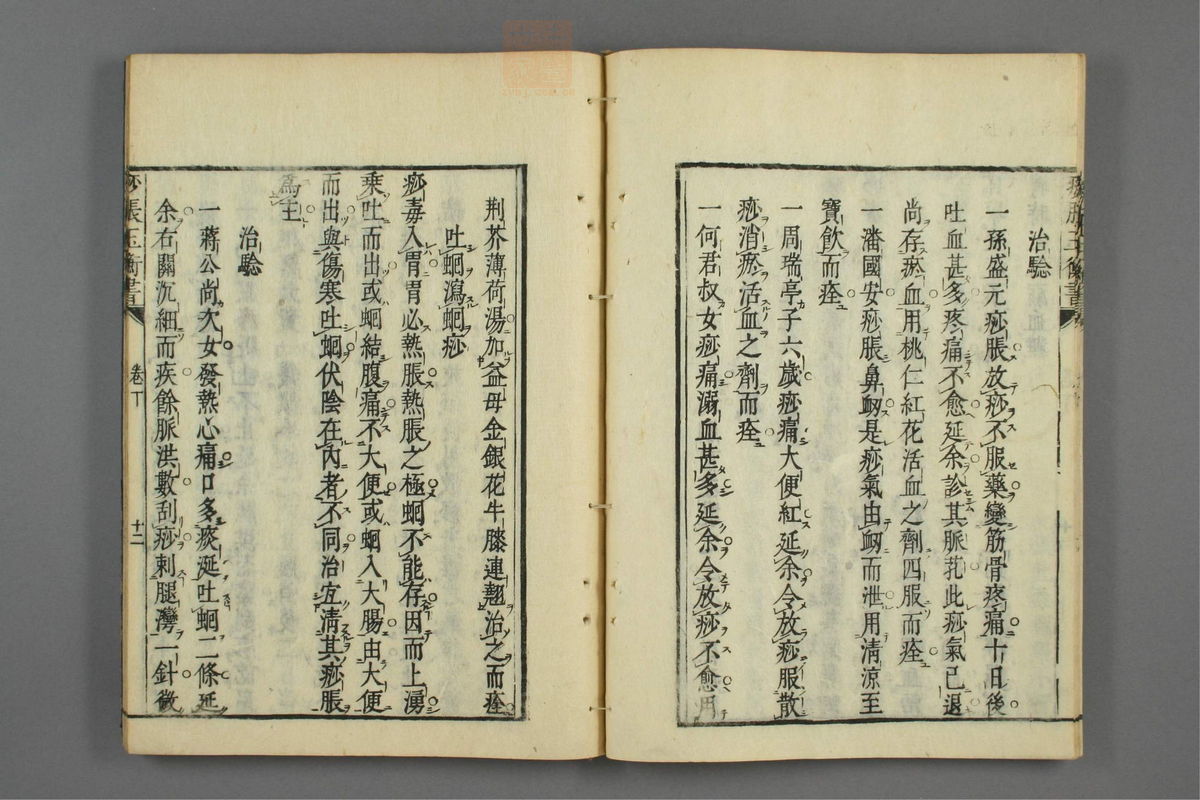 治驗
一孫盛元痧脹放痧不服藥變筋骨疼痛十日後
吐血甚多疼痛不愈延余診其脈芤此痧氣已退
尚存瘀血用桃仁紅花活血之劑四服而痊
一潘國安痧脹鼻衂是痧氣由衂而泄用清涼至
寶飲而痊
一周瑞亭子六歲痧痛大便紅延余令放痧服散
痧消瘀活血之劑而痊
一何君叔女痧痛溺血甚多延余令放痧不愈用
荆芥薄荷湯加益母金銀花牛膝連翹治之而痊
吐蛔瀉蛔痧
痧毒入胃胃必熱脹熱脹之極蛔不能存因而上湧
乘吐而出或蛔結腹痛不大便或蛔入大腸由大便
而出與傷寒吐蛔伏陰在内者不同治宜清其痧脹
爲主
治驗
一蔣公尚次女發熱心痛口多痰涎吐蛔二條延
余右關沉細而疾餘脈洪數刮痧刺腿灣一針微
痧脹玉衡書
卷下
十二